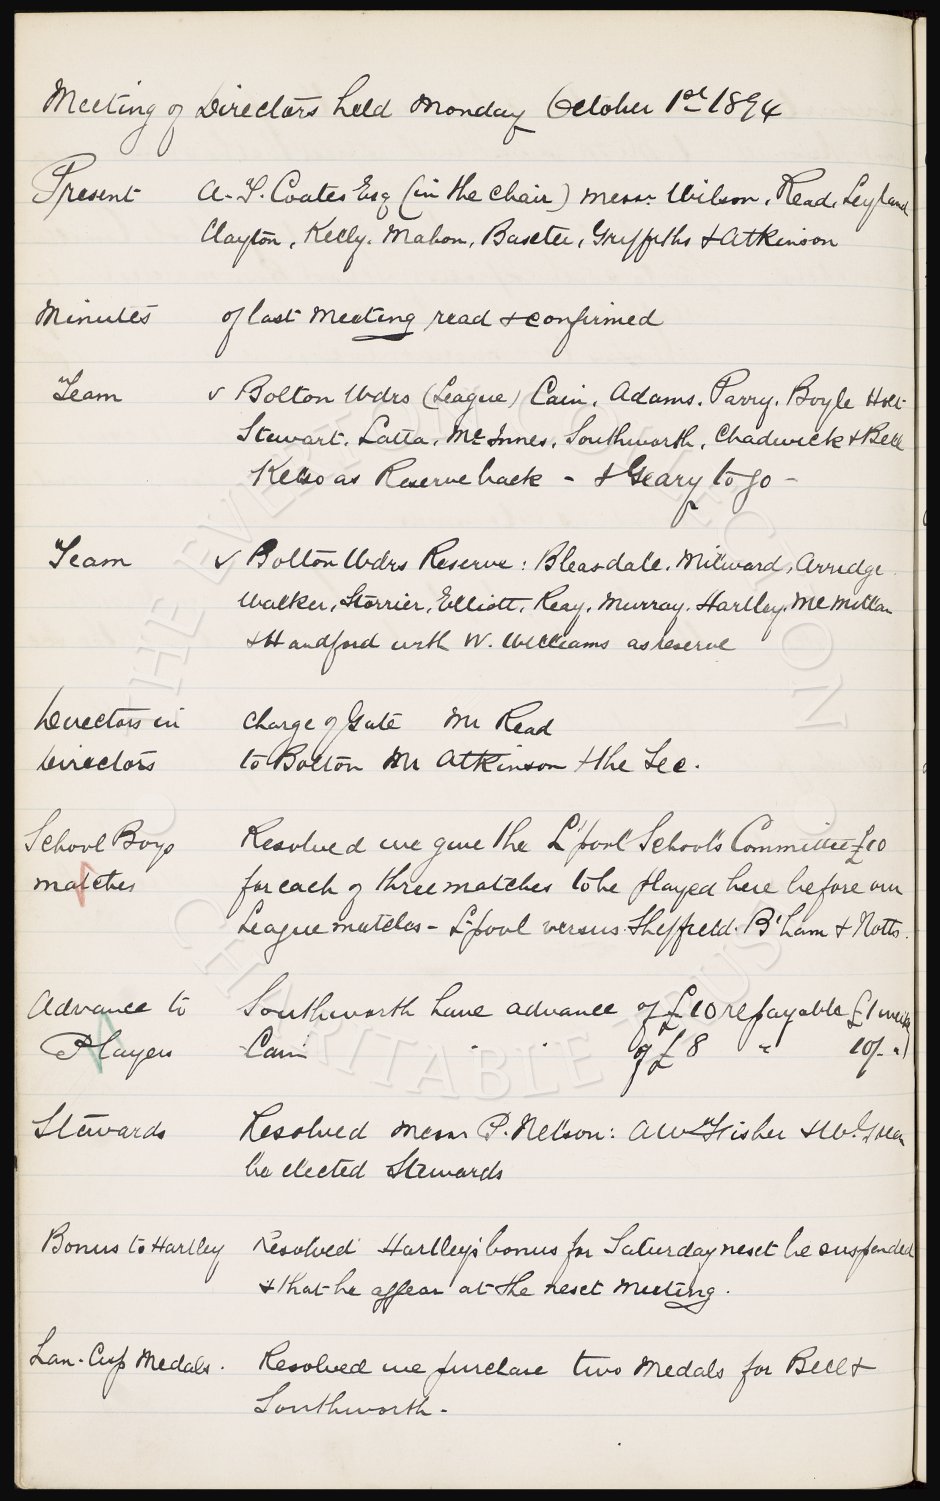 Meeting of Directors held Monday October 1st 1894
Present A. T. Coates Esq (in the chair) Messrs Wilson, Read, Leyland
Clayton, Kelly, Mahon, Baxter, Griffiths & Atkinson
Minutes of last meeting read & confirmed
Team v Bolton Wdrs (League) Cain, Adams, Parry, Boyle Holt
Stewart, Latta, McInnes, Southworth, Chadwick & Bell
Kelso as Reserve back - & Geary to go -
Team v Bolton Wdrs Reserve: Bleasdale, Milward, Arridge
Walker, Storrier, Elliott, Reay, Murray, Hartley, McMillan
& Handford with W. Williams as reserve
Directors in charge of Gate Mr Read
Directors to Bolton Mr Atkinson & the Sec.
School Boys Resolved we give the L'pool Schools Committee £10
matches for each of three matches to be played here before our
League matches - L'pool versus Sheffield. B'ham & Notts.
Advance to Southworth have advance of £10 repayable £1 week
Players Cain " " of £8 " 10/- "
Stewards Resolved Messrs P. Nelson: A W Fisher & W. Green
be elected Stewards
Bonus to Hartley Resolved Hartley's bonus for Saturday next be suspended
& that he appear at the next meeting.
Lan. Cup Medals. Resolved we purchase two Medals for Bell &
Southworth -
THE EVERTON COLLECTION
CHARITABLE TRUST